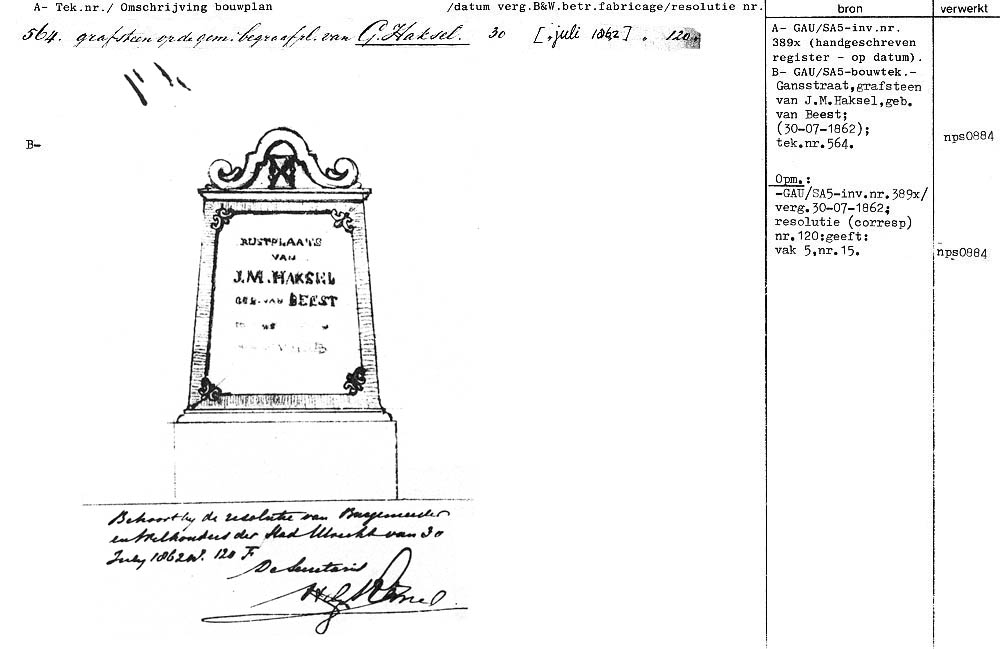 A- Tek.nr./ Omschrijving bouwplan /datum verg.B&W.betr.fabricage/resolutie nr. bron verwerkt
564. grafsteen op de gem: begraafpl. van G. Haksel. 30 [.juli 1862] . 120.
B-
RUSTPLAATS
VAN
J.M. HAKSEL
GEB. VAN BEEST
Behoort by de resolutie van Burgemeester
en Wethouders der Stad Utrecht van 30
July 1862 N°. 120 F
De Secretaris
A- GAU/SA5-inv.nr.
389x (handgeschreven
register - op datum).
B- GAU/SA5-bouwtek.-
Gansstraat,grafsteen
van J.M.Haksel,geb.
van Beest;
(30-07-1862);
tek.nr.564.
nps0884
Opm.:
-GAU/SA5-inv.nr.389x/
verg.30-07-1862;
resolutie (corresp)
nr.120:geeft:
vak 5,nr.15.
nps0884